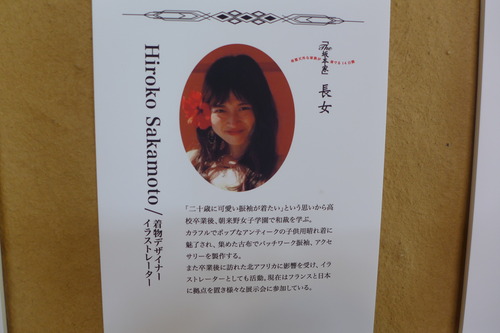 『The 坂本家』 長女
Hiroko Sakamoto/ 着物デザイナー
イラストレーター
「二十歳に可愛い振袖が着たい」という思いから高
校卒業後、朝来野女子学園で和裁を学ぶ。
カラフルでポップなアンティークの子供用晴れ着に
魅了され、集めた古布でパッチワーク振袖、アクセ
サリーを製作する。
また卒業後に訪れた北アフリカに影響を受け、イラ
ストレーターとしても活動。現在はフランスと日本
に拠点を置き様々な展示会に参加している。